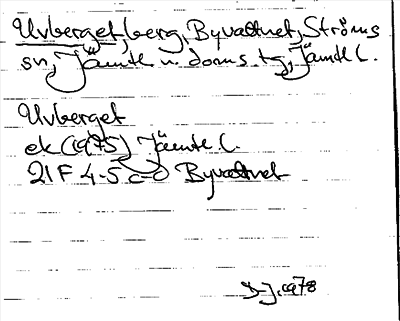 Uvberget, berg, Byvattnet, Ströms
sn, Jämtl. n. doms. tg, Jämtl l.
Uvberget
ek (1975) Jämtl l.
21 F 4-5 c-d Byvattnet
1978